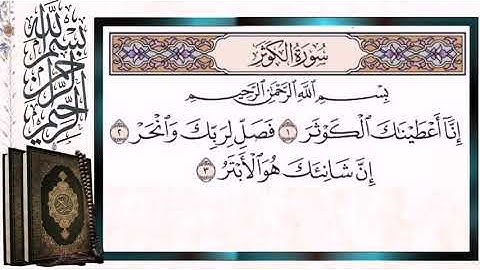 سُورَةُ الْكَوْثَرِ
بِسْمِ ٱللَّهِ ٱلرَّحْمَٰنِ ٱلرَّحِيمِ
إِنَّآ أَعْطَيْنَٰكَ ٱلْكَوْثَرَ ١ فَصَلِّ لِرَبِّكَ وَٱنْحَرْ ٢
إِنَّ شَانِئَكَ هُوَ ٱلْأَبْتَرُ ٣
بسم الله الرحمن الرحيم